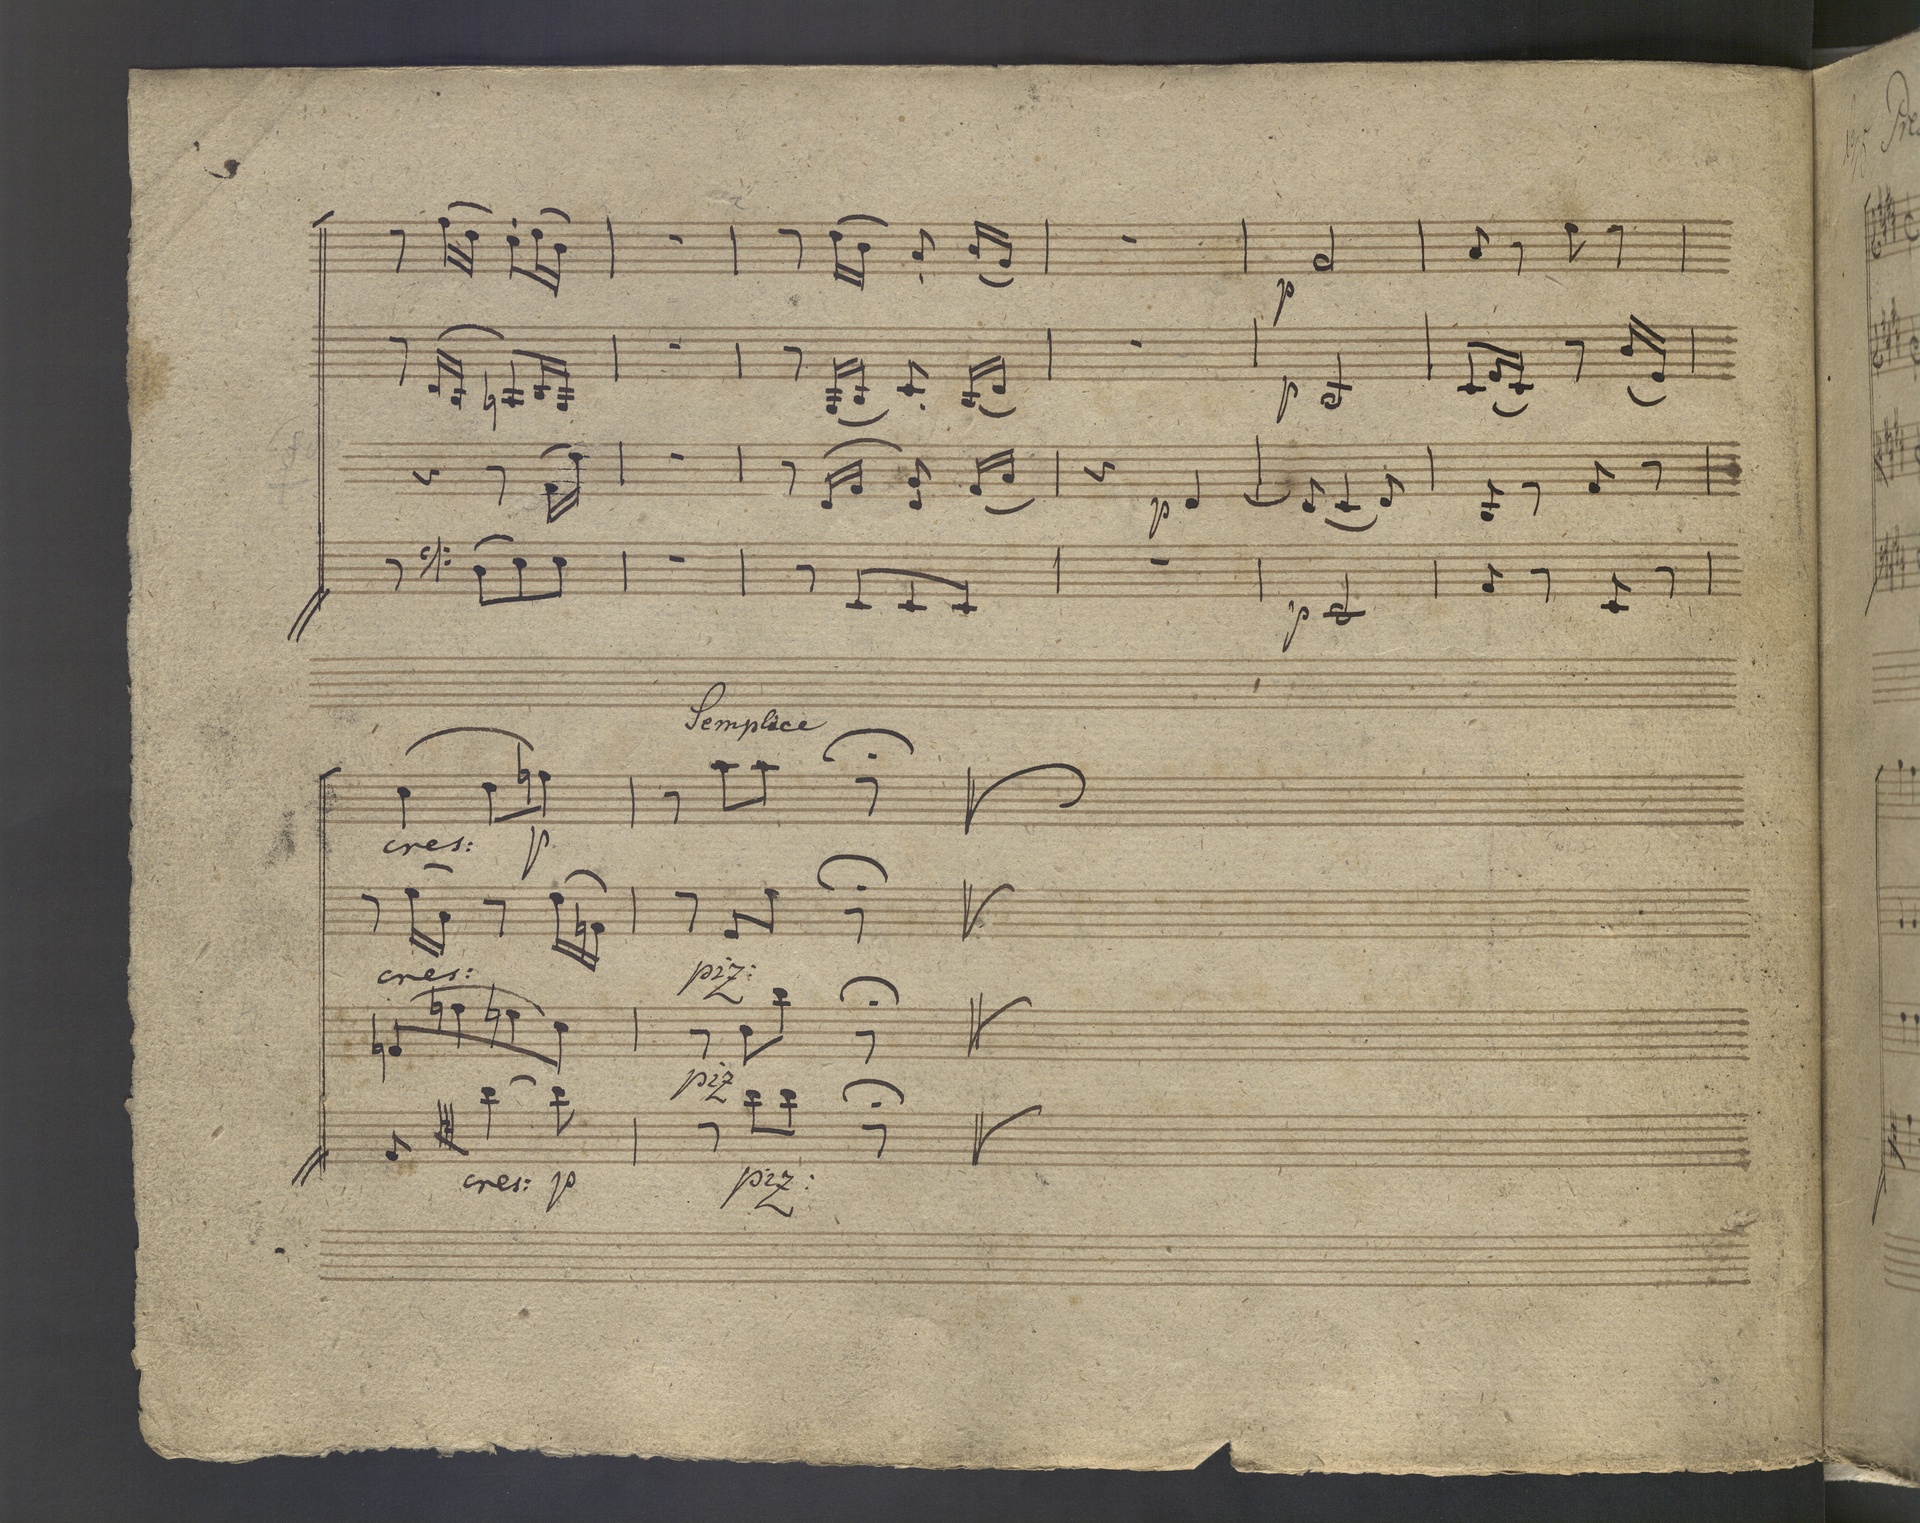 p
p
p
p
Semplice
cres: p
cres: piz:
piz
cres: p piz: